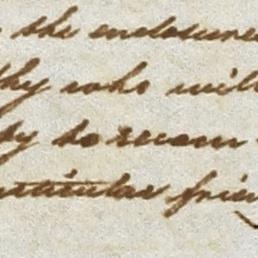 the enclosure
thy who will
by to recom
particular frien